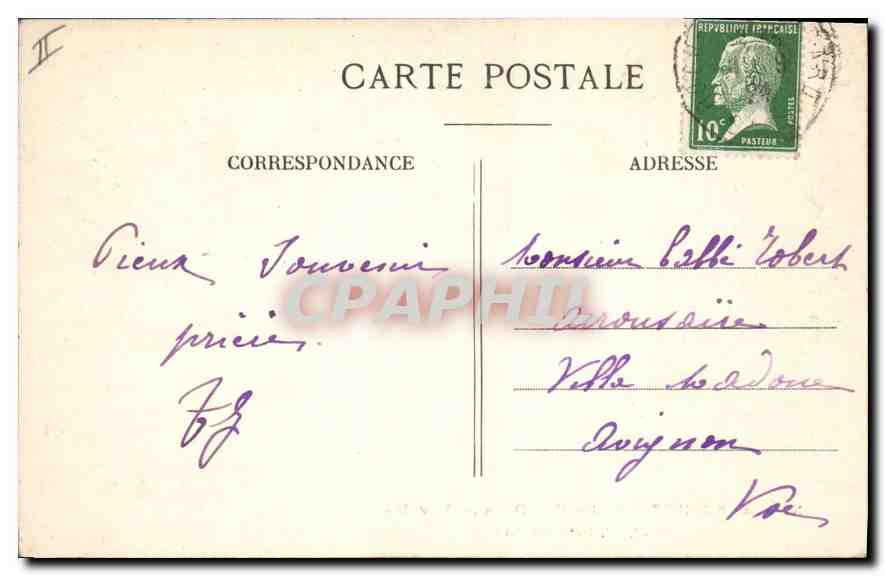 II
CARTE POSTALE
REPVBLIQUE FRANÇAISE
10c
POSTES
PASTEUR
CORRESPONDANCE
ADRESSE
Pieux Souvenir
prières
Monsieur l'abbé Robert
Villa Madone
Avignon
Vse
CPAPHIL